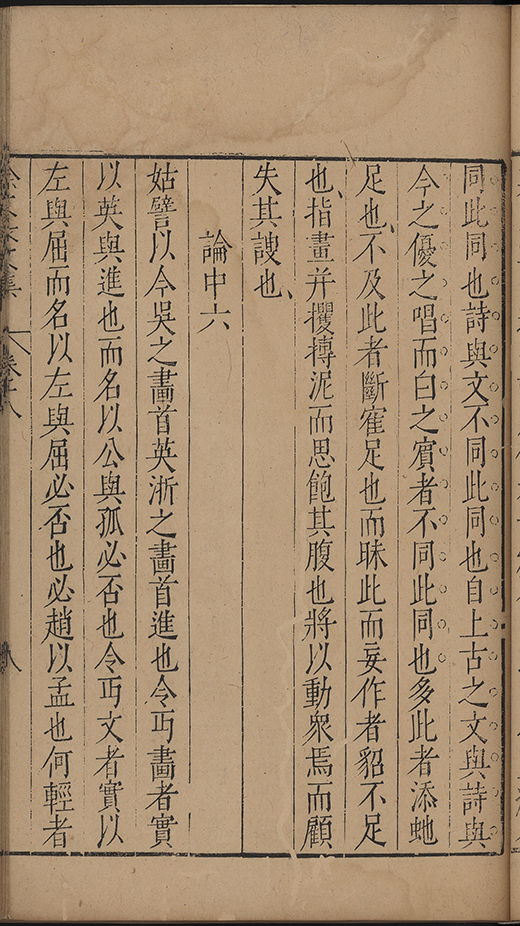 同此同也詩與文不同此同也自上古之文與詩與
今之優之唱而白之賓者不同此同也多此者添虵
足也不及此者斷寉足也而昧此而妄作者貂不足
也指畫并攫摶泥而思飽其腹也將以動衆焉而顧
失其謏也
論中六
姑譬以今吳之畵首英浙之畵首進也令丐畵者實
以英與進也而名以公與孤必否也令丐文者實以
左與屈而名以左與屈必否也必趙以孟也何輕者
卷十八
八